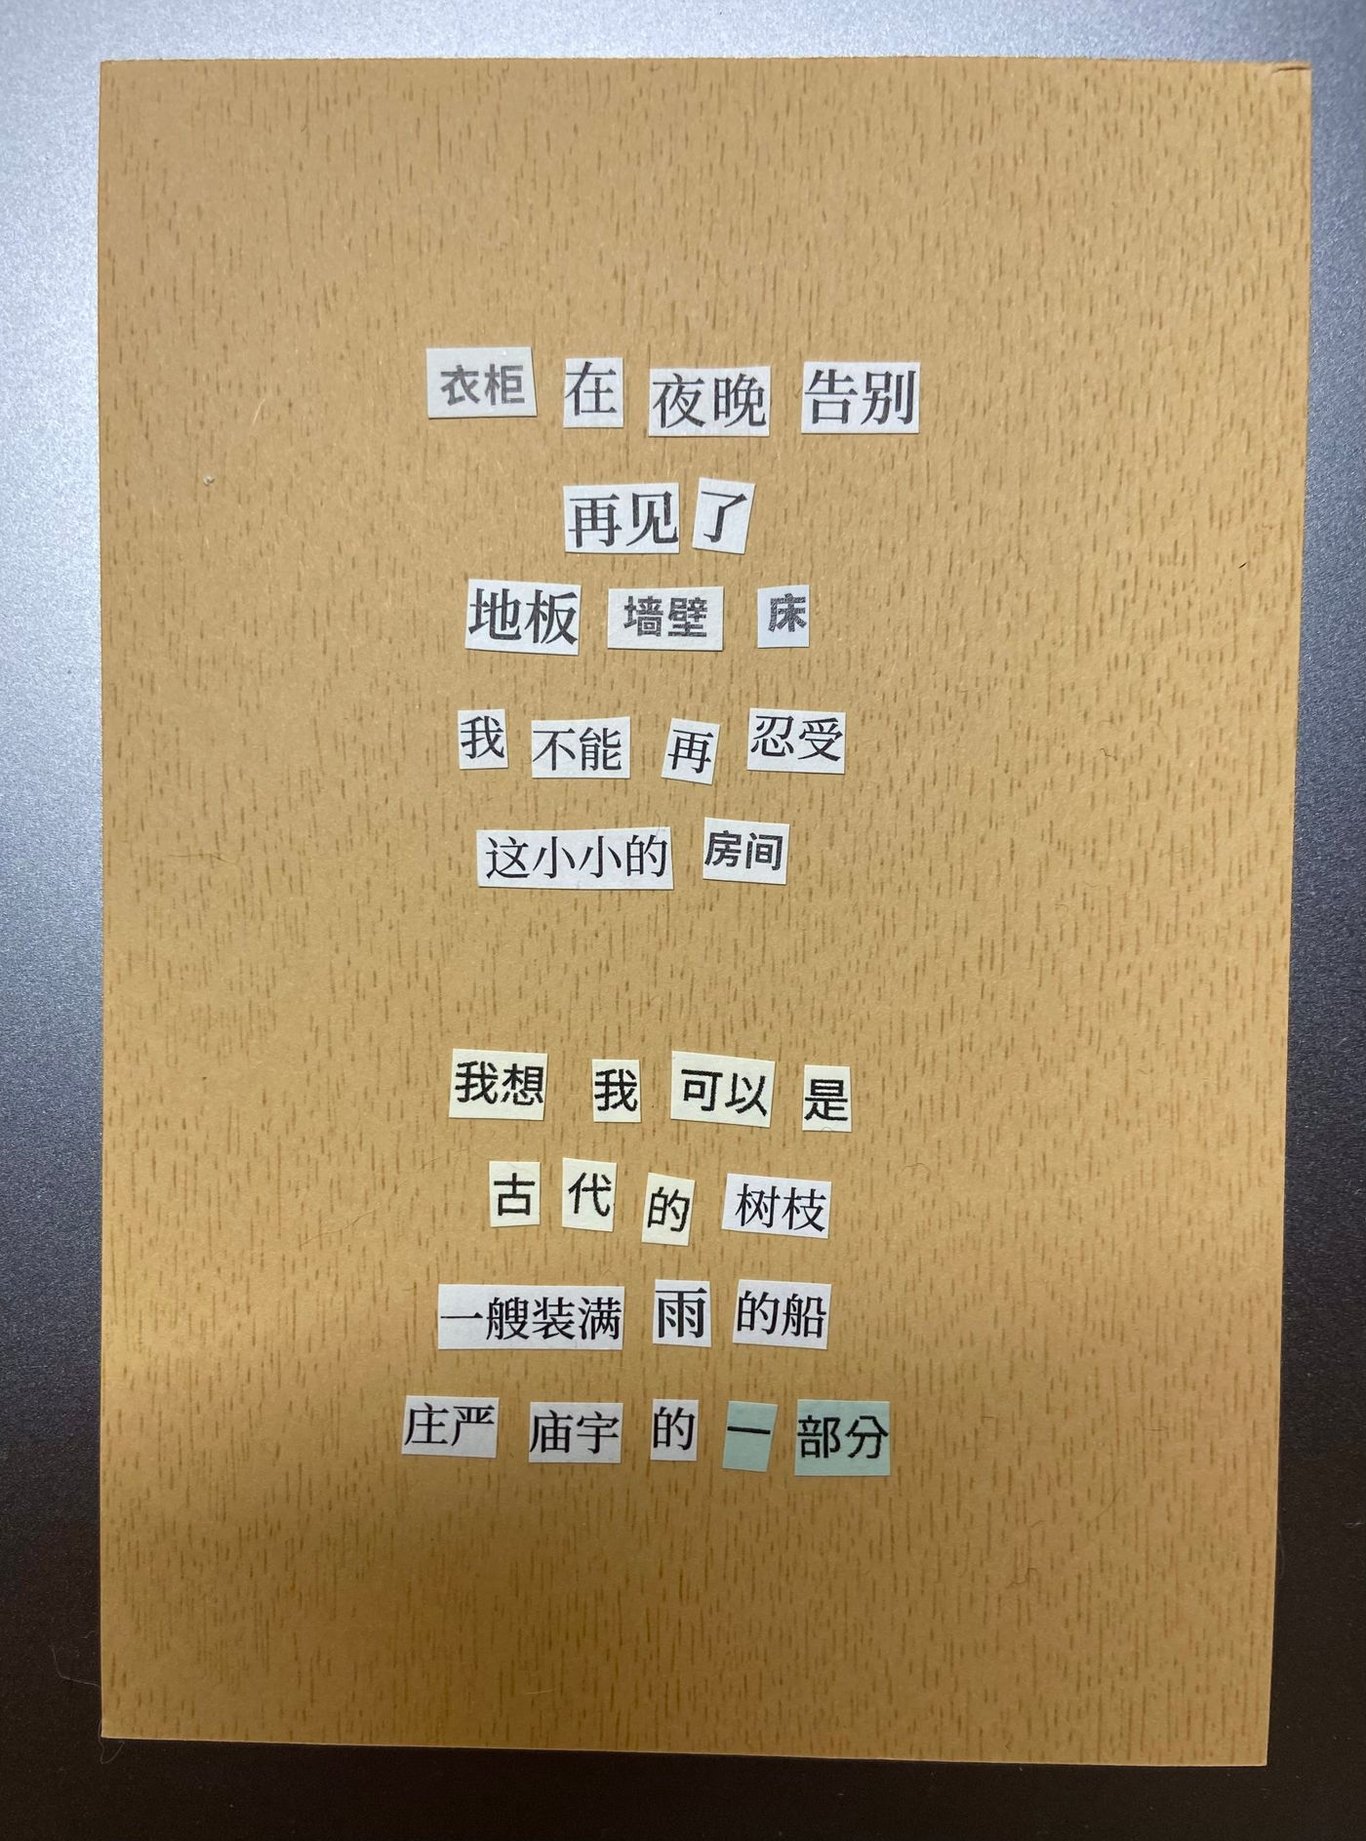 衣柜 在 夜晚 告别
再见 了
地板 墙壁 床
我 不能 再 忍受
这小小的 房间
我想 我 可以 是
古 代 的 树枝
一艘装满 雨 的船
庄严 庙宇 的 一 部分